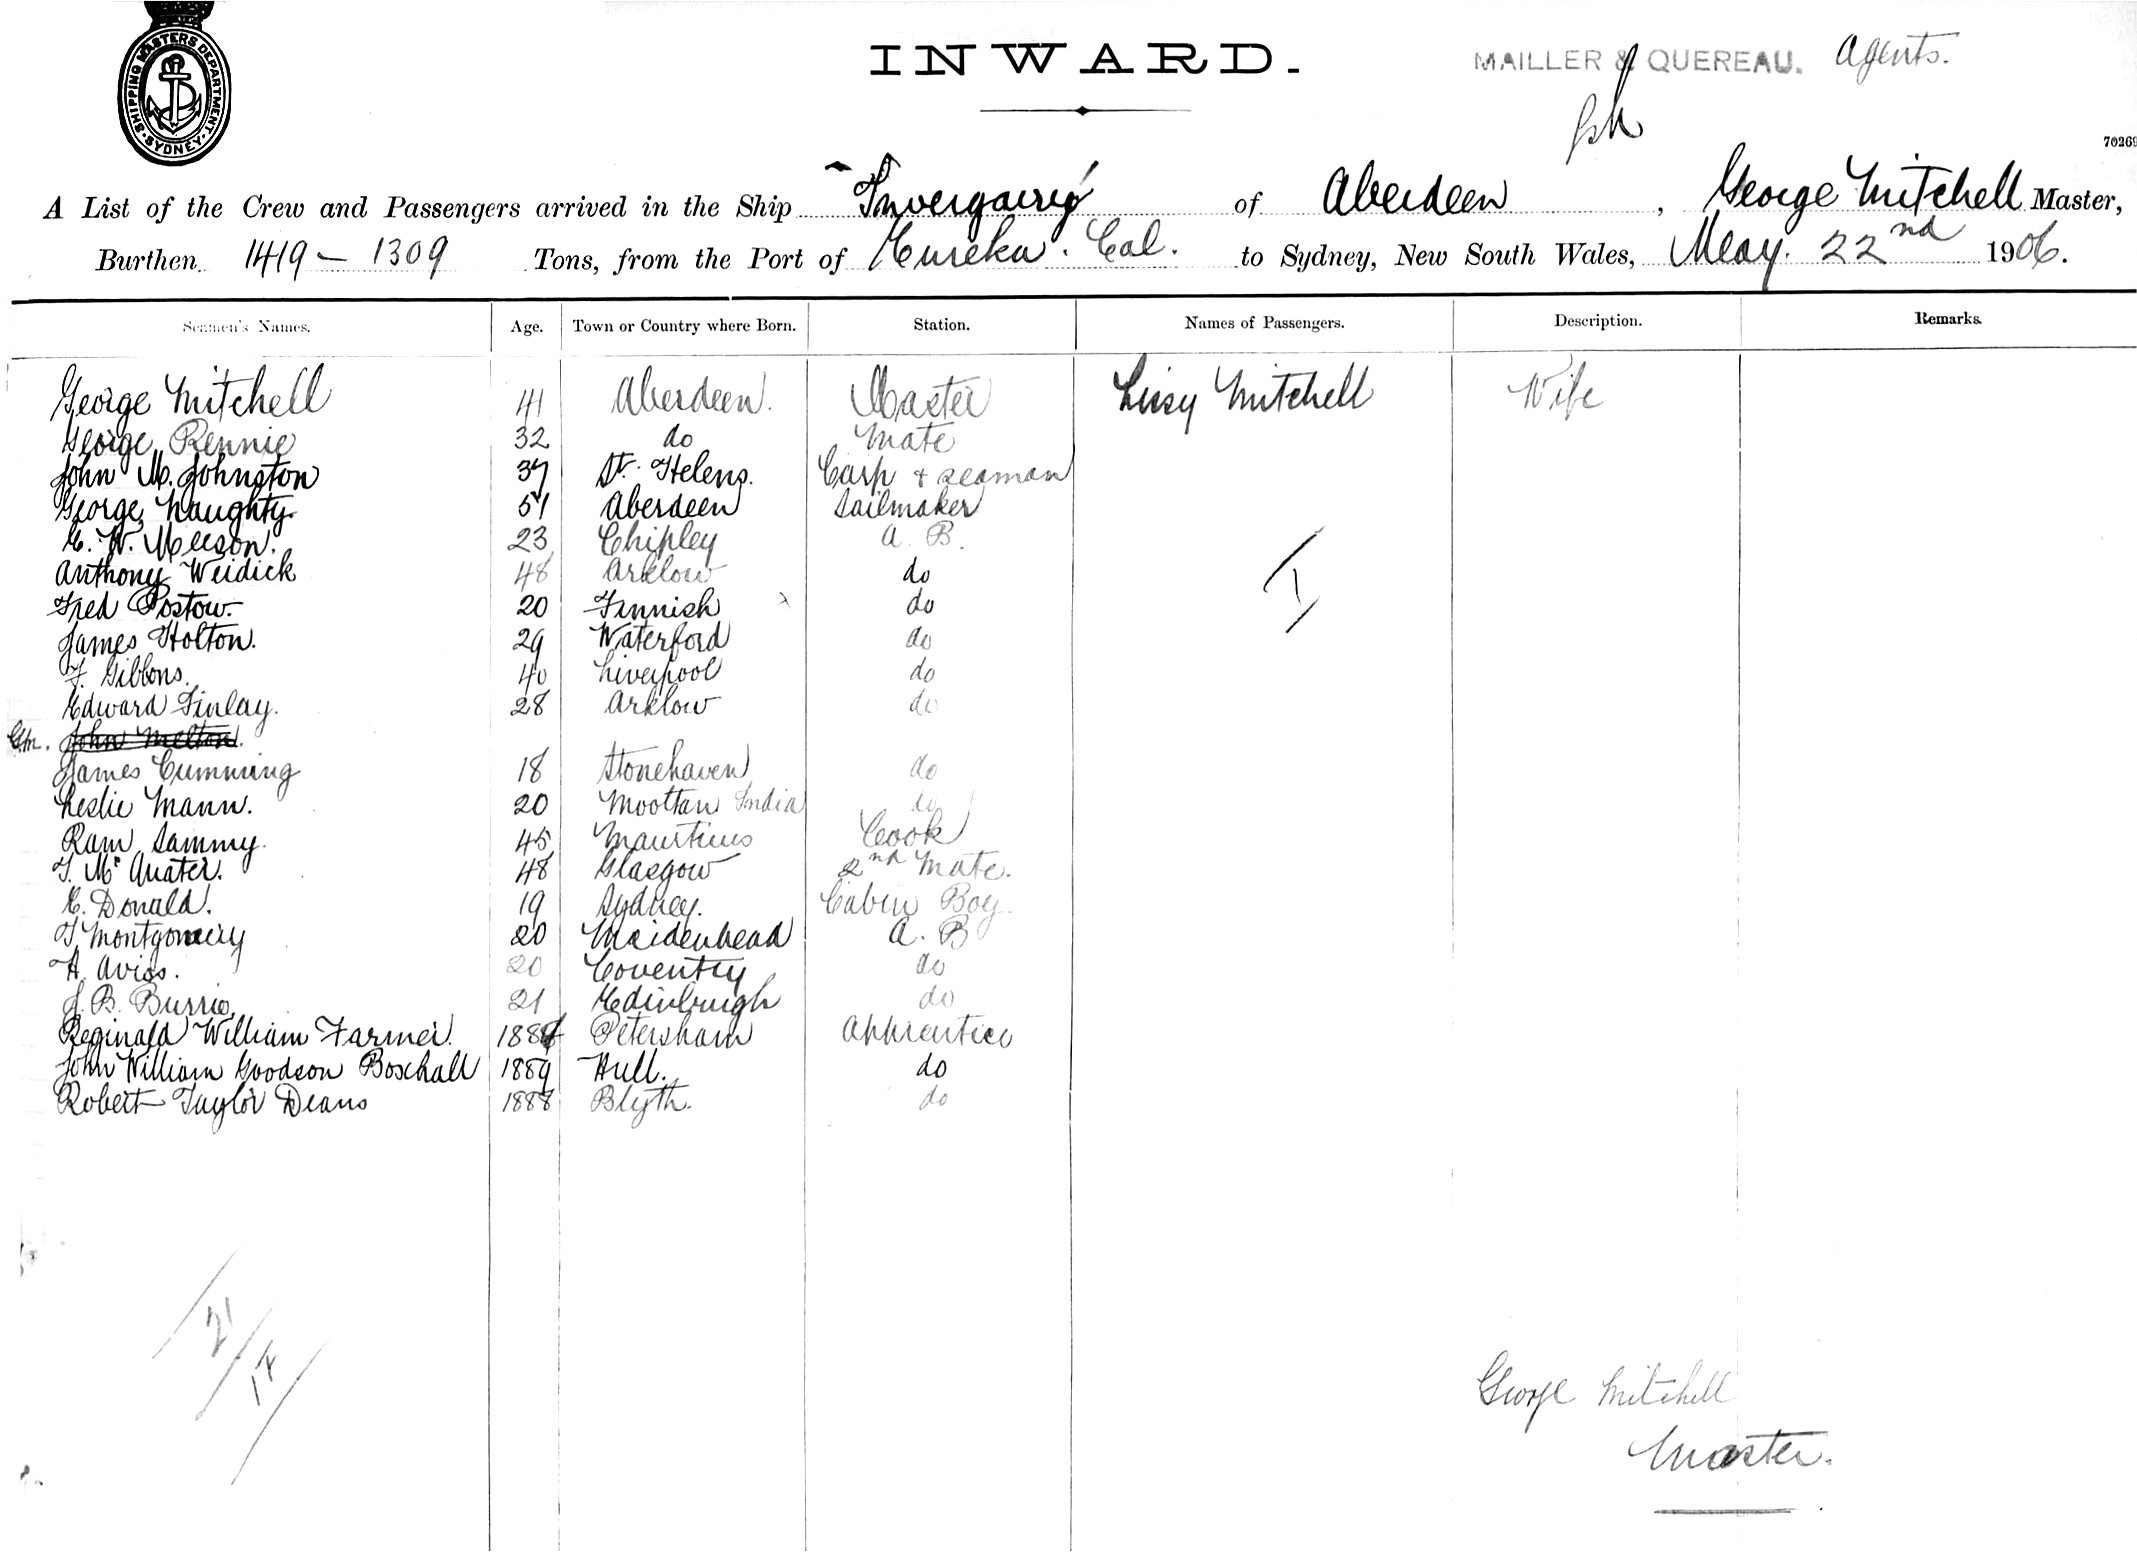 SHIPPING MASTERS DEPARTMENT. SYDNEY
INWARD.
MAILLER & QUEREAU. Agents.
70269
A List of the Crew and Passengers arrived in the Ship "Invergarry" of Aberdeen, George Mitchell Master,
Burthen 1419 - 1309 Tons, from the Port of Eureka. Cal. to Sydney, New South Wales, May. 22nd 1906.
Seamen's Names. Age. Town or Country where Born. Station. Names of Passengers. Description. Remarks.
George Mitchell 41 Aberdeen. Master Lissy Mitchell Wife
George Rennie 32 do Mate
John M. Johnston 37 St. Helens. Carp & seaman
George Naughty. 51 Aberdeen Sailmaker
E. W. Meeson. 23 Chipley A. B.
Anthony Weidick 48 Arklow do
Fred Postow. 20 Finnish do
James Holton. 29 Waterford do
F. Gibbons. 40 Liverpool do
Edward Finlay. 28 Arklow do
G.M. John Melton.
James Cumming 18 Stonehaven do
Leslie Mann. 20 Mooltan India do
Ram Sammy. 45 Mauritius Cook
T. McQuater. 48 Glasgow 2nd Mate.
E. Donald. 19 Sydney. Cabin Boy.
T. Montgomery 20 Maidenhead A. B
H. Avios. 20 Coventry do
J. B. Burrie. 21 Edinburgh do
Reginald William Farmer. Petersham Apprentice
John William Goodson Boxhall 1889 Hull. do
Robert Taylor Deans 1888 Blyth. do
I
21
George Mitchell
Master.